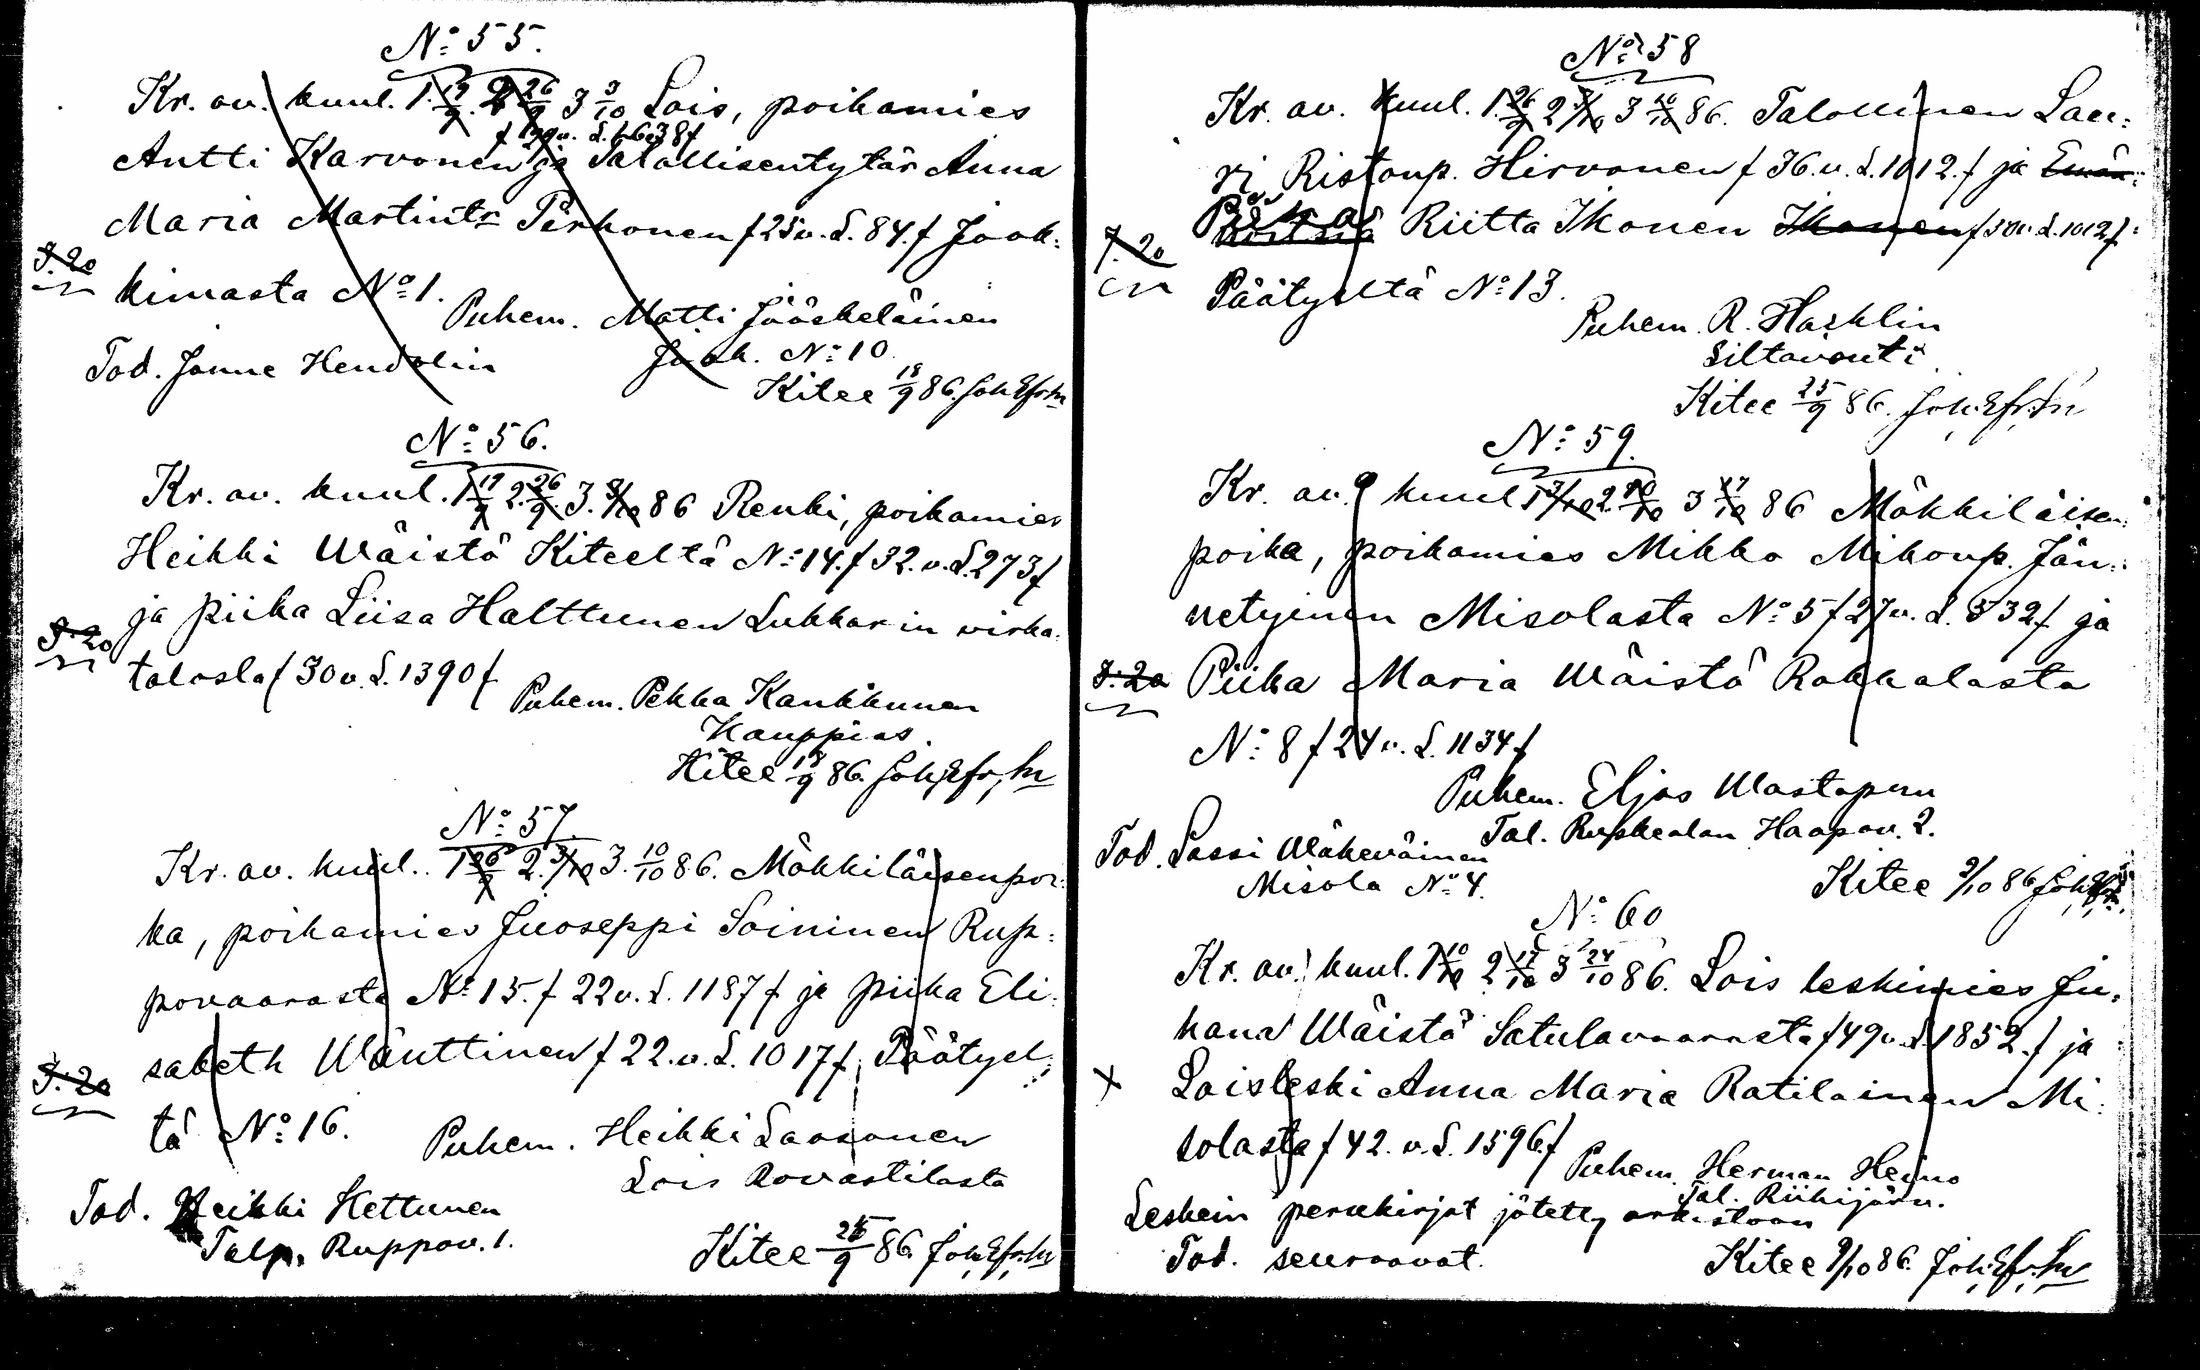 No: 55.
Kr. av. kuul. 1. 19/9. 2 26/9 3 3/10 Lois, poikamies
f 29 v. S. 1638 f
Antti Karvonen ja Talollisentytär Anna
Maria Martintr Pirhonen f 25 v. S. 84. f Jook:
J. 20
kimasta No: 1.
Puhem. Matti Jääskeläinen
Jook. No: 10
Tod. Janne Hendolin
Kitee 18/9 86.
No: 56.
Kr. av. kuul. 1 19/9 2. 26/9. 3. 3/10 86 Renki, poikamies
Heikki Wäistö Kiteeltä No: 14. f 32. v. S. 273 f
ja piika Liisa Halttunen Lukkarin virka:
J. 20
talosta f 30 v. S. 1390 f
Puhem. Pekka Kankkunen
Kauppias.
Kitee 18/9 86.
No: 57.
Kr. av. kuul. 1 26/9 2. 3/10 3. 10/10 86. Mökkiläisenpoi:
ka, poikamies Juoseppi Soininen Rup:
povaarasta No: 15. f 22 v. S. 1187 f ja piika Eli:
sabeth Wänttinen f 22. v. S. 1017 f, Päätyel:
J. 20
tä No: 16.
Puhem. Heikki Laasonen
Lois Rovastilasta
Tod. Heikki Kettunen
Talp. Ruppov. 1.
Kitee 25/9 86.
No: 58
Kr. av. kuul. 1. 26/9 2 3/10 3 10/10 86. Talollinen Lau:
ri Ristonp. Hirvonen f 36. v. S. 1012. f ja Emän:
Piika Riitta Ikonen Ikonen f 30 v. S. 1012 f:
J. 20
Päätyeltä No: 13.
Puhem. R. Hasklin
Siltavouti
Kitee 25/9 86.
No: 59.
Kr. av. kuul 1 3/10 2. 10/10 3 17/10 86 Mökkiläisen:
poika, poikamies Mikko Mikonp. Jän:
netyinen Misolasta No: 5 f 27 v. S. 532 f ja
J. 20
Piika Maria Wäistö Rokkalasta
No: 8 f 24 v. S. 1134 f
Puhem. Eljas Wastapuu
Tal. Ruskealan Haapav. 2.
Tod. Lassi Wäkeväinen
Misola No: 4.
Kitee 2/10 86
No: 60
Kr. av. kuul. 1 10/10 2 17/10 3 24/10 86. Lois leskimies Ju:
hana Wäistö Satulavaarasta f 49 v. S. 1852. f ja
x
Loisleski Anna Maria Ratilainen Mi:
solasta f 42. v. S. 1596. f
Puhem. Herman Heino
Tal. Riihijärv.
Leskein perukirjat jätetty arkistoon
Tod. seuraavat.
Kitee 9/10 86.